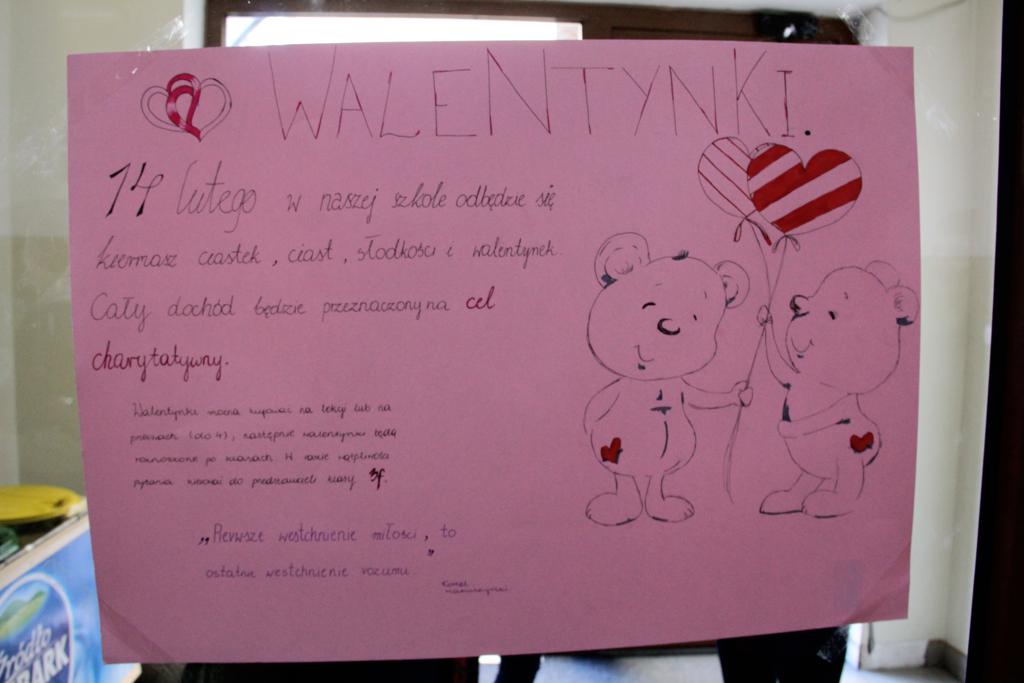 WALENTYNKI.
14 lutego w naszej szkole odbędzie się
kiermasz ciastek, ciast, słodkości i walentynek.
Cały dochód będzie przeznaczony na cel
charytatywny.
Walentynki można kupować na lekcji lub na
przerwach (do 4), następnie walentynki będą
roznoszone po klasach. W razie wątpliwości
pytania kierować do przedstawicieli klasy 3f.
„Pierwsze westchnienie miłości, to
ostatnie westchnienie rozumu"
Kornel
Makuszyński
źródło
PARK